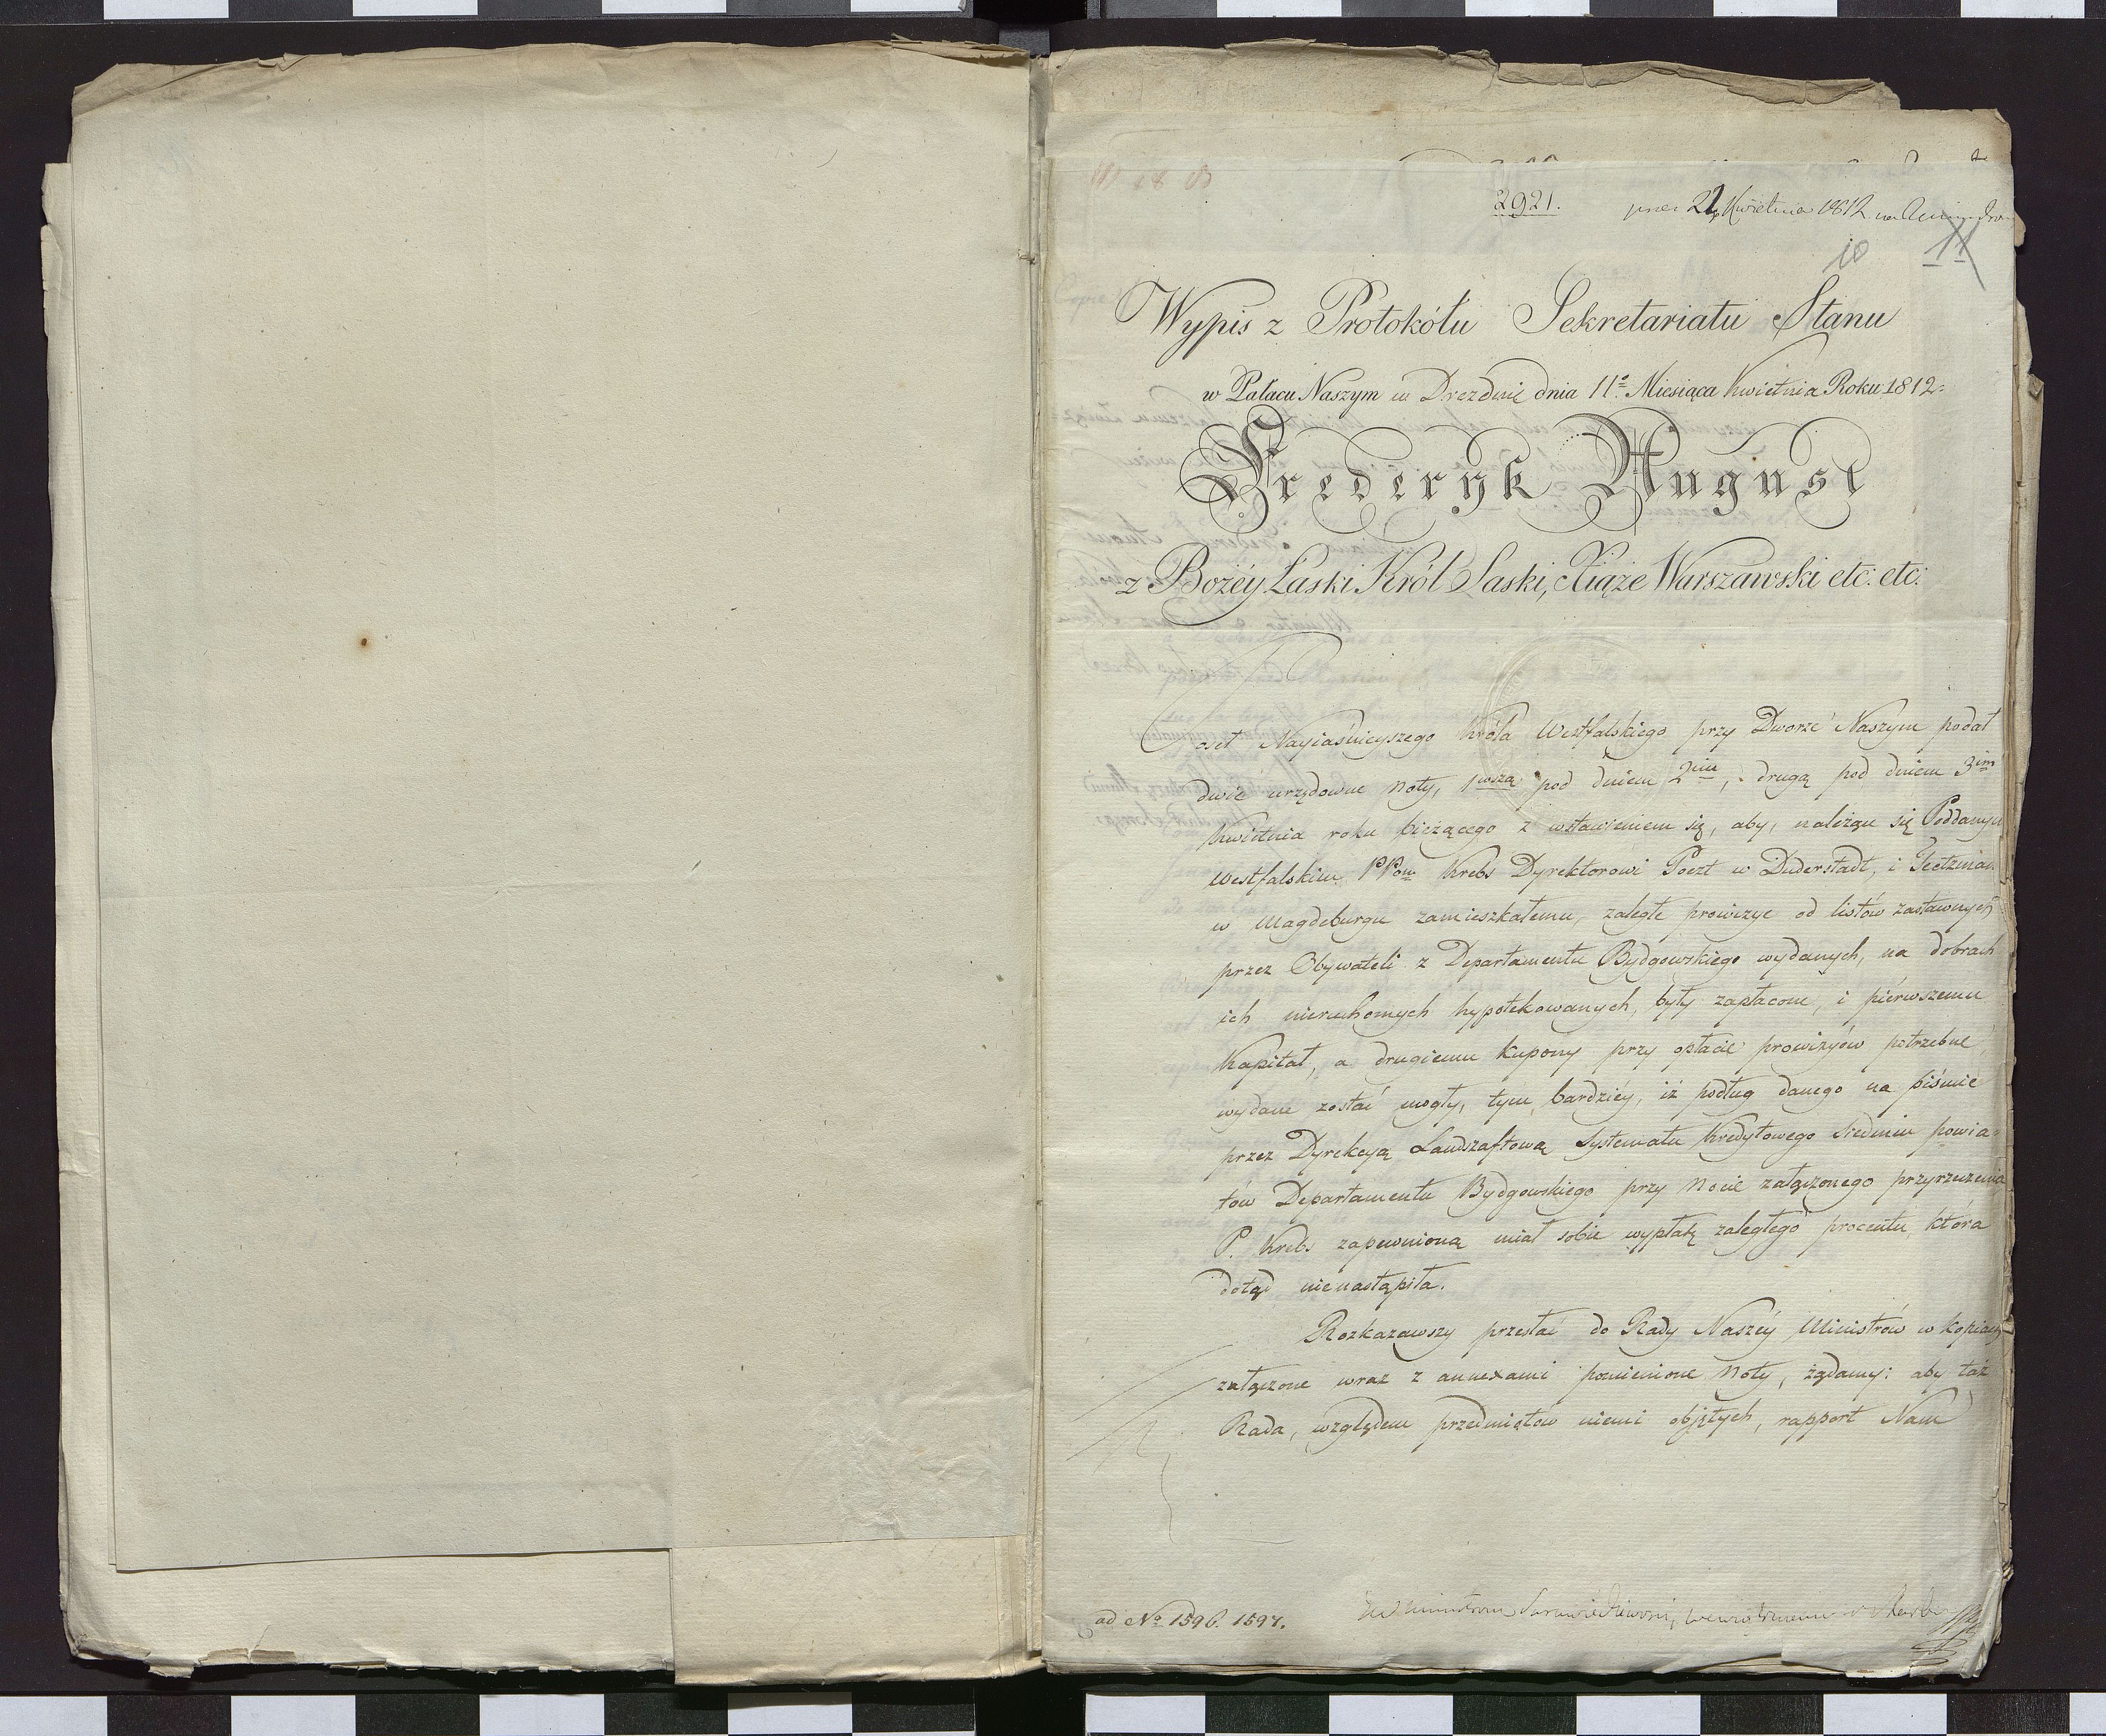 2921.
22 Kwietnia 1812
10 11
Wypis z Protokółu Sekretariatu Stanu
w Pałacu Naszym w Dreznie dnia 11º Miesiąca Kwietnia Roku 1812:
Frederyk August
z Bożéy Łaski Król Saski, Xiąże Warszawski etc: etc:
Poseł Nayiaśnieyszego Króla Westfalskiego przy Dworze Naszym podał
dwie urzędowne Noty, 1wszą pod dniem 2im, drugą pod dniem 3im
Kwietnia roku bieżącego z wstawieniem się, aby, należące się Poddanym
Westfalskim PPom Krebs Dyrektorowi Poczt w Duderstadt, i
w Magdeburgu zamieszkałemu, zaległe prowizye od listów zastawnych
przez Obywateli z Departamentu Bydgowskiego wydanych, na dobrach
ich nieruchomych hypotekowanych, były zapłacone, i piérwszemu
Kapitał, a drugiemu Kupony przy opłacie prowizyów potrzebne,
wydane zostać mogły, tym bardziéy, iż podług danego na piśmie
przez Dyrekcyą Landszaftową Systematu Kredytowego siedmiu powia=
tów Departamentu Bydgowskiego przy Nocie załączonego przyrzeczenia
P. Krebs zapewnioną miał sobie wypłatę zaległego procentu, która
dotąd nienastąpiła.
Rozkazawszy przesłać do Rady Naszéy Ministrów w kopiach
załączone wraz z annexami pomienione Noty, żądamy: aby taż
Rada, względem przedmiotów niemi objętych, rapport Nam
ad No 1596. 1597.